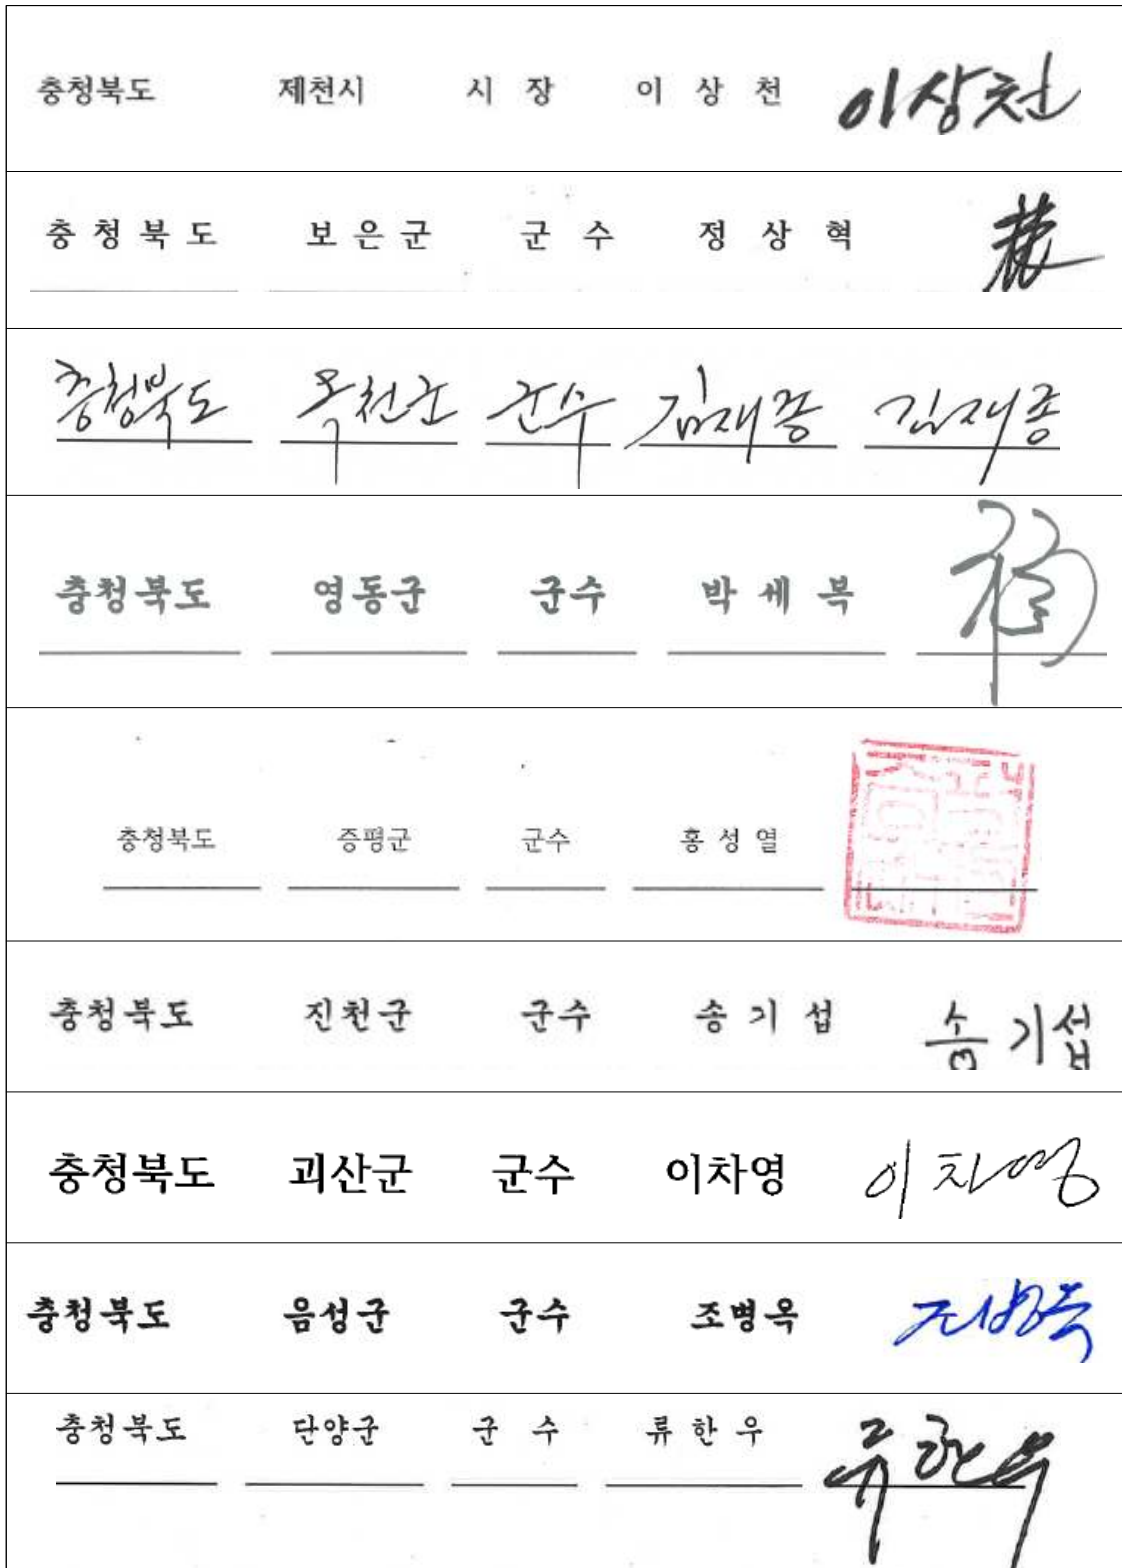 충청북도 제천시 시 장 이 상 천 이상천
충 청 북 도 보 은 군 군 수 정 상 혁
충청북도 옥천군 군수 김재종 김재종
충청북도 영동군 군수 박 세 복
충청북도 증평군 군수 홍 성 열
충청북도 진천군 군수 송 기 섭 송 기섭
충청북도 괴산군 군수 이차영 이차영
충청북도 음성군 군수 조병옥 조병옥
충청북도 단양군 군 수 류 한 우 류한우